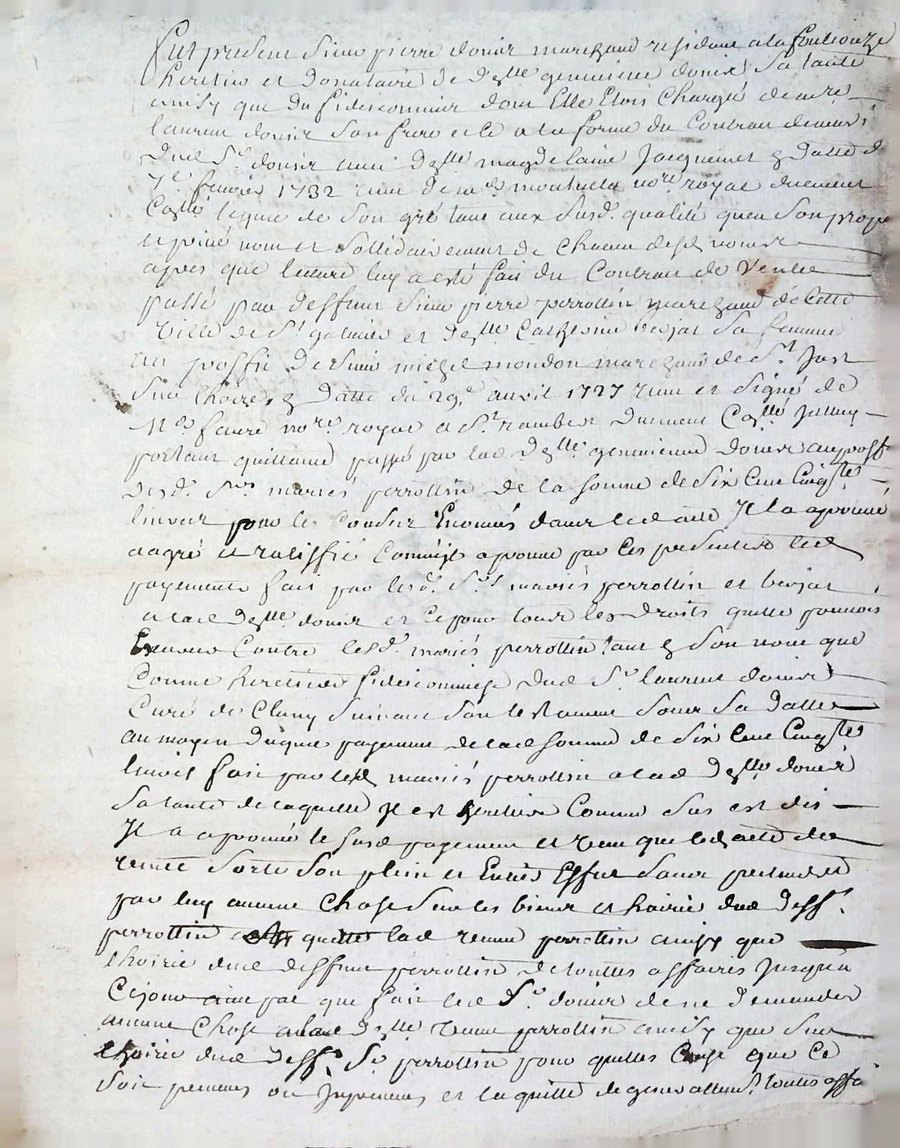 fut present Sieur pierre donir marchand residant a la fouliouze
heretier et donataire de d'elle genevieve donir Sa tante
ainsy que du fideicommis dont Elle Etois chargé de mre
laurent donir Son frere et ce a la forme du Contrat de
dud Sr donir avec delle magdelaine Jacquemet datte du
7e fevrier 1732 reçu de me montuela nore royal duement
Collé lequel de Son gré tant aux susd. qualité quen Son propre
et privé nom et Sollidairement de chacun desd noms
apres que lecture luy a esté fait du Contrat de Vente
passé par deffunt Sieur pierre perrottin marchand de Cette
Ville de St galmier et delle Catherine berjat Sa femme
au proffit de Sieur michel mondon marchand de St Just
Sur Loire datte du 29e avril 1727 reçu et Signé de
Me faure nore royal a St rambert duement Collé Jcelluy
portant quittance passé par lad delle genevieve donir au proff
desd. Srs mariés perrottin de la Somme de Six Cent Cinqte
livres pour les Causes Enoncés dans led acte Jl a aprouvé
agréé et ratiffié Comme aprouve par Ces presentes led
payement fait par lesd. Srs mariés perrottin et berjat
a lad delle donir et ce pour tous les droits quelle pouvois
Exercer Contre lesd. mariés perrottin tant Son nom que
Comme heretiere fideicommise dud Sr laurent donir
Curé de Cluny Suivant Son testament Sous Sa datte
au moyen duquel payement de lad Somme de Six Cent Cinqte
livres fait par lesd mariés perrottin a lad delle donir
Sa tante de laquelle Jl est heritier Comme Sus est dit
Jl a aprouvé le Susd payement et veut que led acte de
vente Sorte Son plein et Entier Effet Sans pretendre
par luy aucune Chose Sur les biens et hoirie dud deff.
perrottin quitte lad veuve perrottin ainsy que
Lhoirie dud deffunt perrottin de touttes affaires Jusqua
Ce jour que fait led Sr donir de ne demander
aucune Chose a lad delle veuve perrottin ainsy que Sur
Lhoirie dud deff. Sr perrottin pour quelle Cause que Ce
Soit prevues ou Jmprevues et la quitte de generallement touttes affai